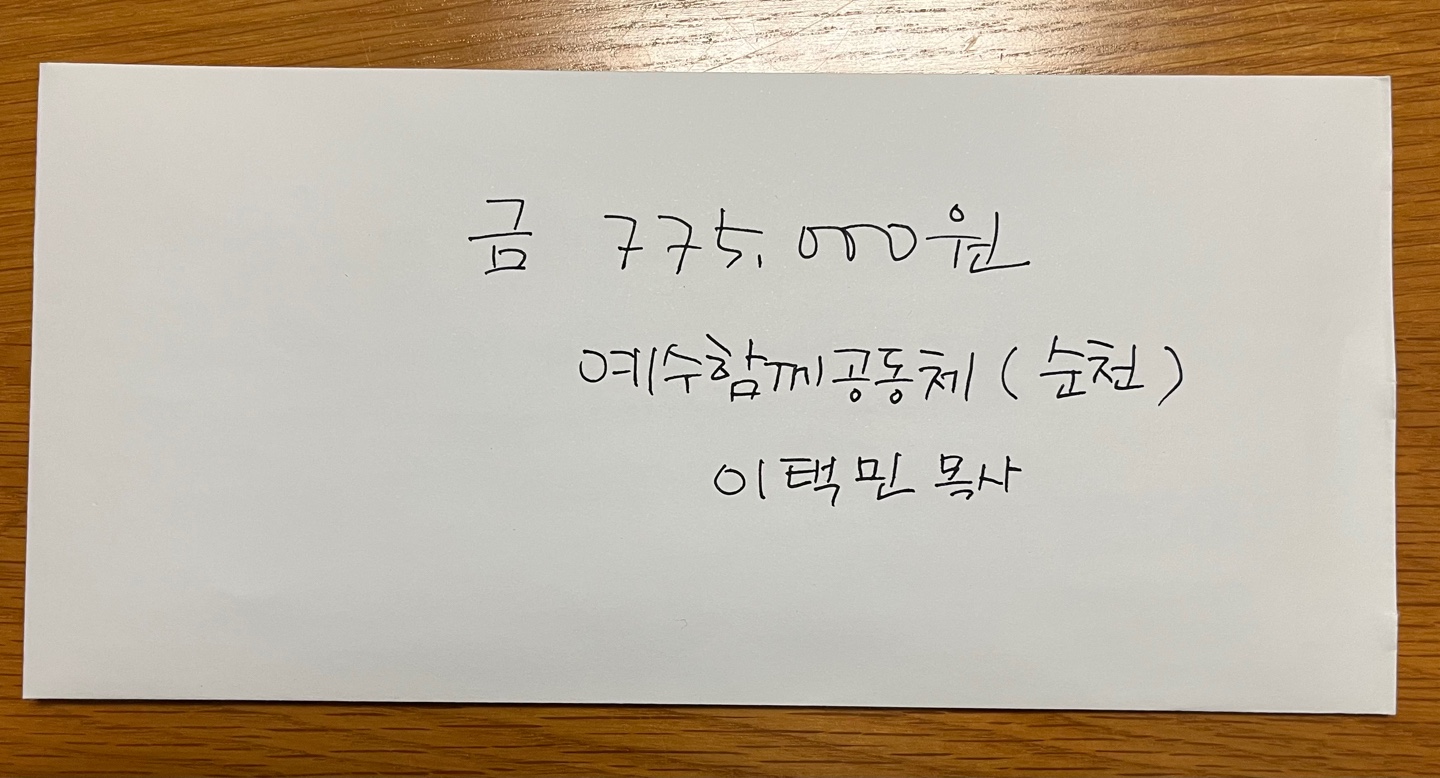 금 775,000원
예수함께공동체 (순천)
이택민 목사